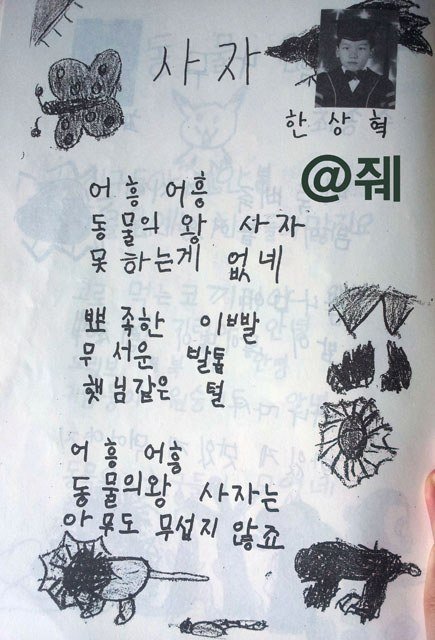 사자
한상혁
@줴
어흥어흥
동물의 왕 사자
못하는게 없네
뾰족한 이빨
무서운 발톱
햇님같은 털
어흥 어흥
동물의왕 사자는
아무도 무섭지 않죠